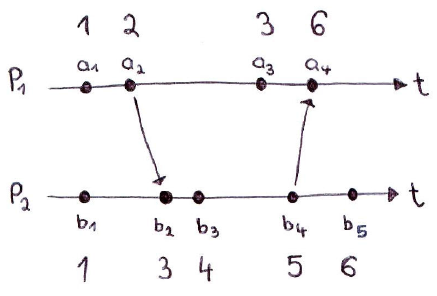 1 2 3 6
a1 a2 a3 a4
P1 t
P2 t
b1 b2 b3 b4 b5
1 3 4 5 6